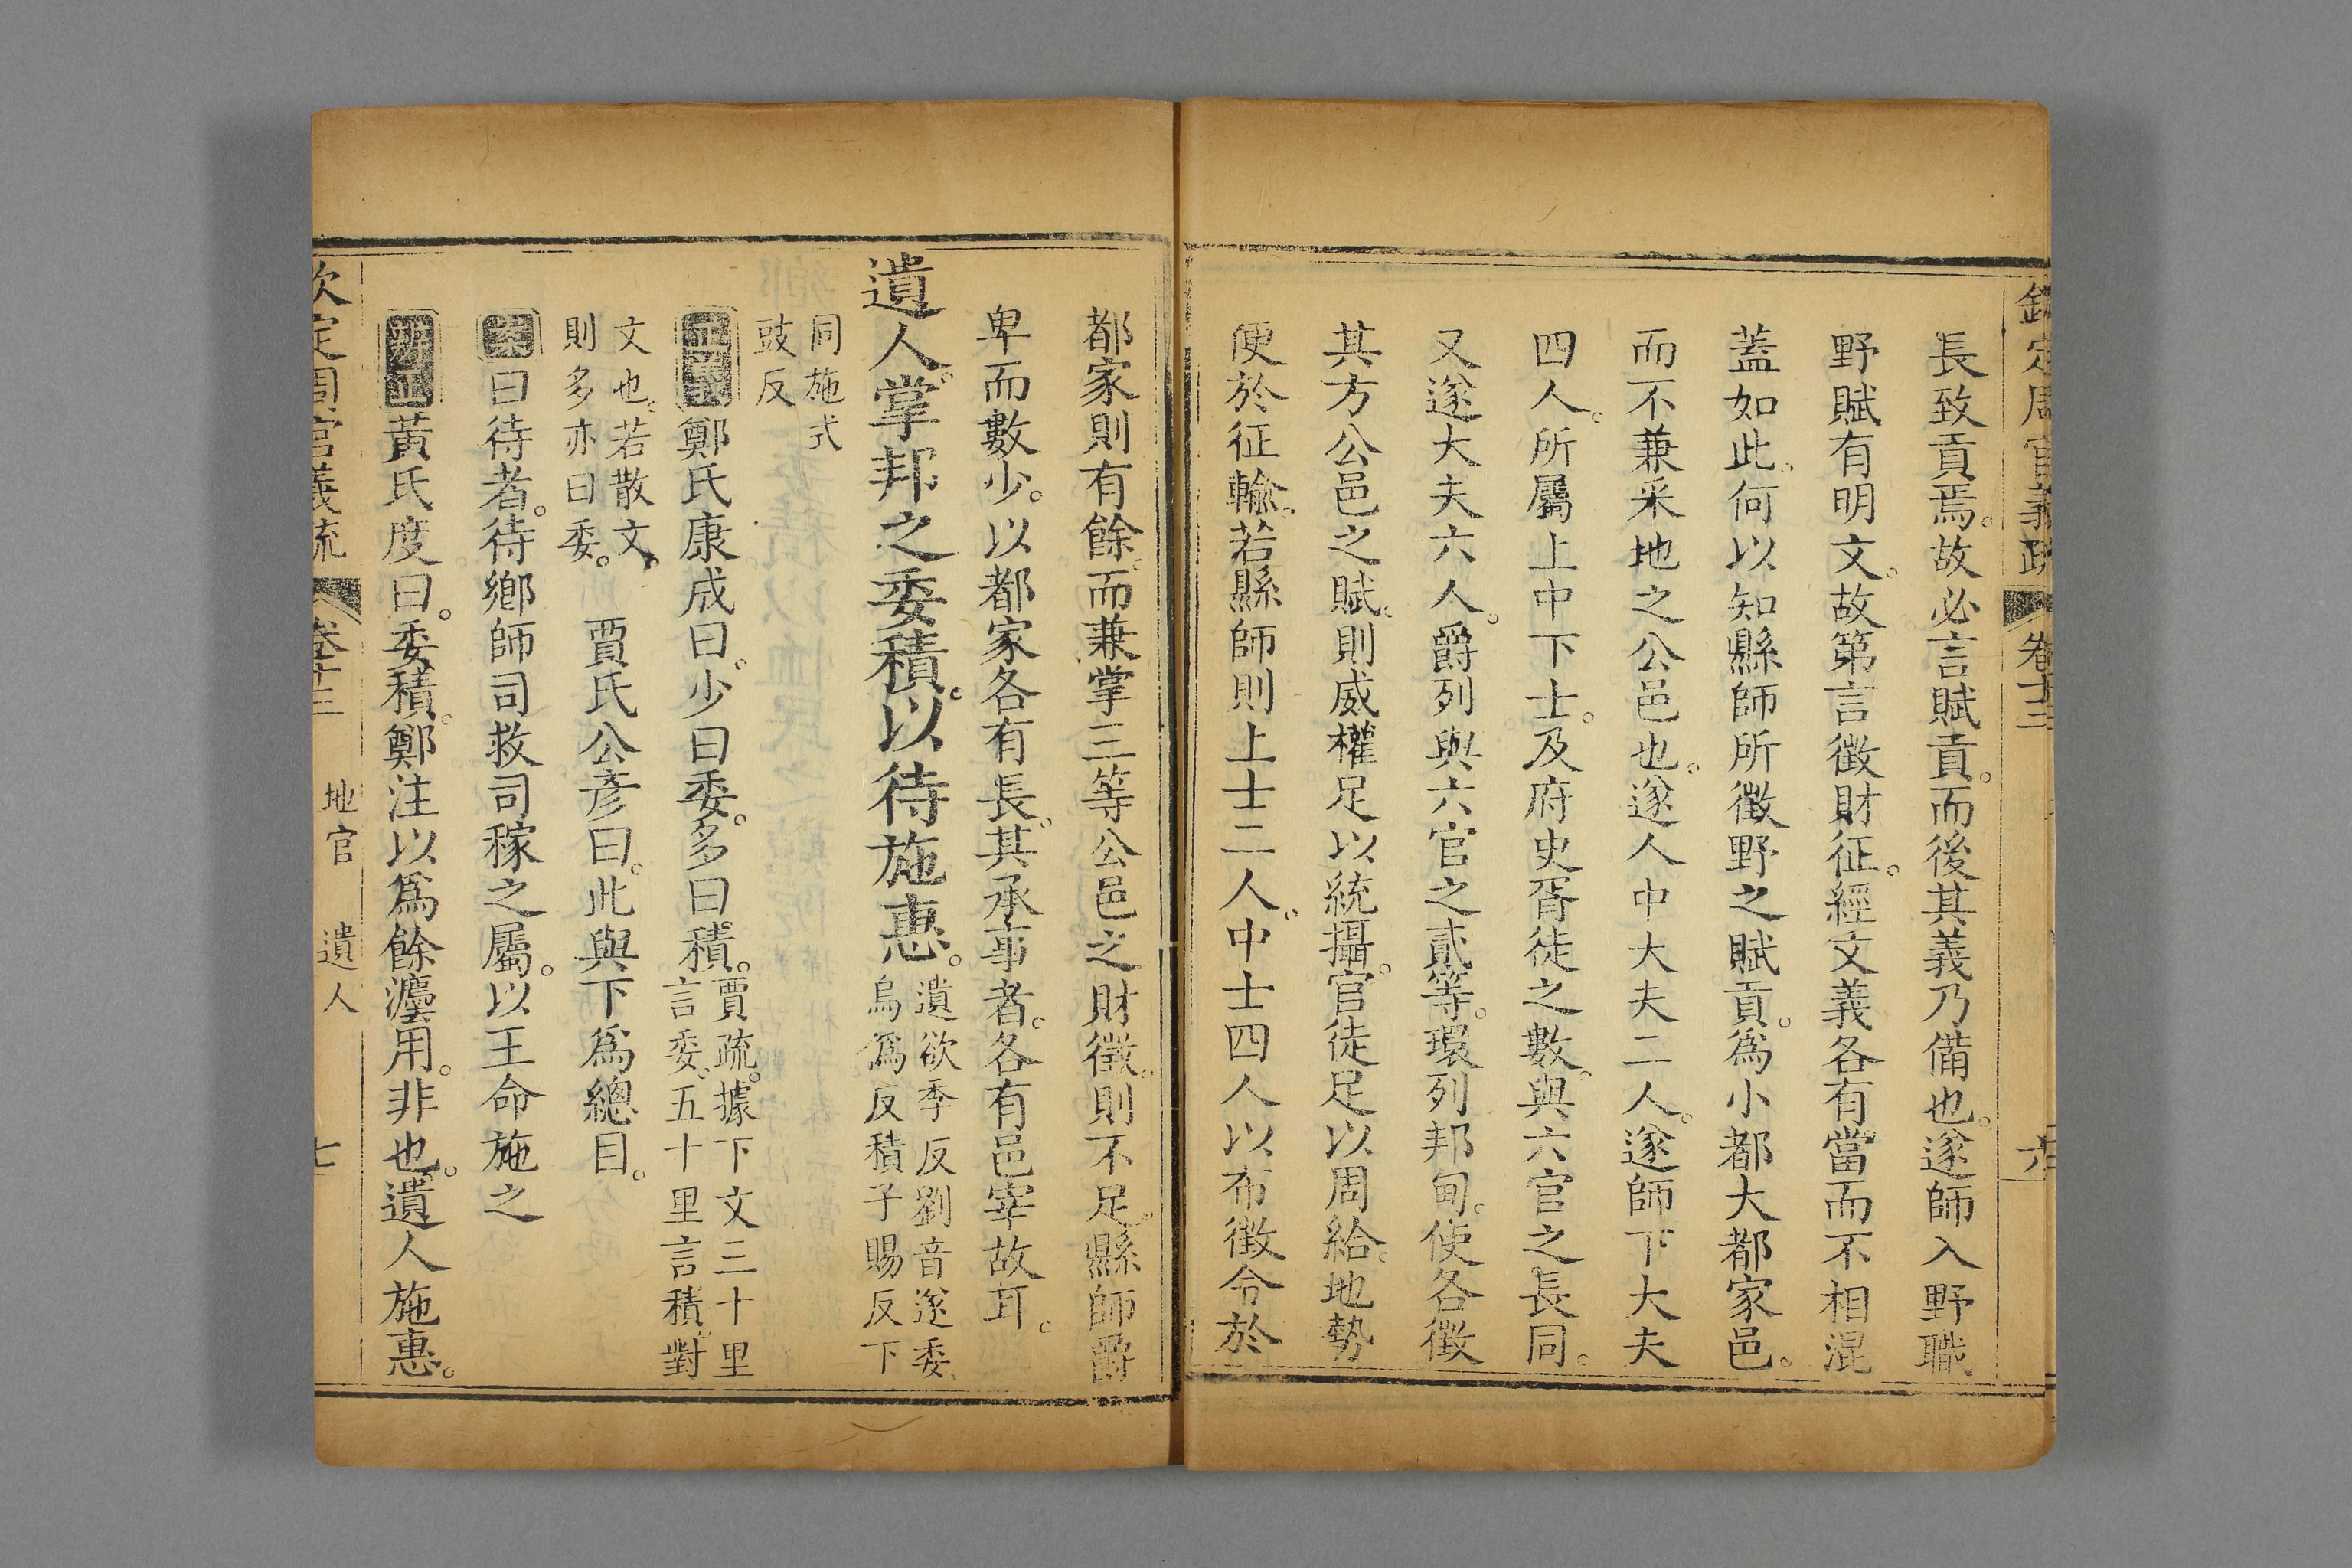 欽定周官義疏 卷十三 六
長致貢焉。故必言賦貢。而後其義乃備也。遂師入野職
野賦有明文。故第言徵財征。經文義各有當。而不相混
蓋如此。何以知縣師所徵野之賦貢。爲小都大都家邑。
而不兼采地之公邑也。遂人中大夫二人。遂師下大夫
四人。所屬上中下士。及府史胥徒之數。與六官之長同。
又遂大夫六人。爵列與六官之貳等。環列邦甸。使各徵
其方公邑之賦。則威權足以統攝。官徒足以周給。地勢
便於征輸。若縣師則上士二人。中士四人以布徵令於
都家則有餘。而兼掌三等公邑之財徵。則不足。縣師爵
卑而數少。以都家各有長。其承事者。各有邑宰故耳。
遺人。掌邦之委積。以待施惠。遺欲季反劉音遂委
烏爲反積子賜反下
同施式
豉反
正義鄭氏康成曰。少曰委。多曰積。賈疏。據下文三十里
言委。五十里言積。對
文也。若散文。
則多亦曰委。 賈氏公彥曰。此與下爲總目。
案曰待者。待鄉師司救司稼之屬。以王命施之
辨正黃氏度曰。委積。鄭注以爲餘灋用。非也。遺人施惠。
欽定周官義疏 卷十三 地官 遺人 七